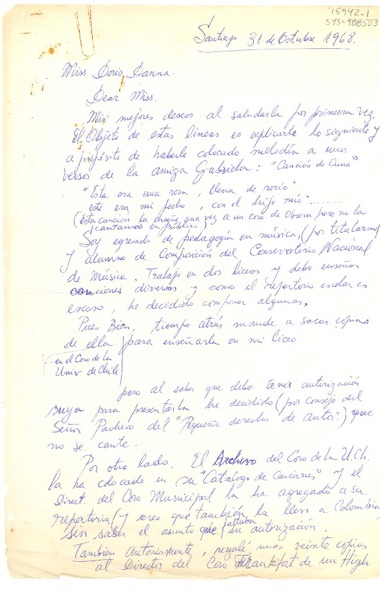 15942.1
SYS-988503
Santiago 31 de Octubre 1968.
Miss Doris Danna.
Dear Miss.
Mis mejores deseos al saludarla por primera vez.
El Objeto de estas líneas es explicarle lo siguiente y
a propósito de haberle colocado melodía a unos
versos de la amiga Gabriela: "Canción de Cuna"
"Esta era una rosa, llena de rocío
este era mi pecho, con el hijo mío........
(Esta canción la ensayé una vez a un Coro de Obreros pero no la
cantamos en público)
Soy egresado de pedagogía en música, (por titularme)
y alumno de Composición del Conservatorio Nacional
de Música. Trabajo en dos liceos y debo enseñar
canciones diversas y como el repertorio escolar es
escaso, he decidido componer algunas.
Pues Bien, tiempo atrás mandé a sacar copias
de ella para enseñarla en mi liceo
en el Coro de la
Univ. de Chile
pero al saber que debo tener autorización
suya para presentarla he decidido (por consejo del
Señor Pacheco del "Pequeño derecho de autor") que
no se cante.
Por otro lado. El Archivo del Coro de la U.Ch.
la ha colocado en su "Catálogo de Canciones" y el
Direct. del Coro Municipal la ha agregado a su
repertorio y creo que también la llevó a Colombia
sin saber el asunto que faltaba la autorización.
También anteriormente, regalé unas veinte copias
al Director del Coro Frankfort de un High